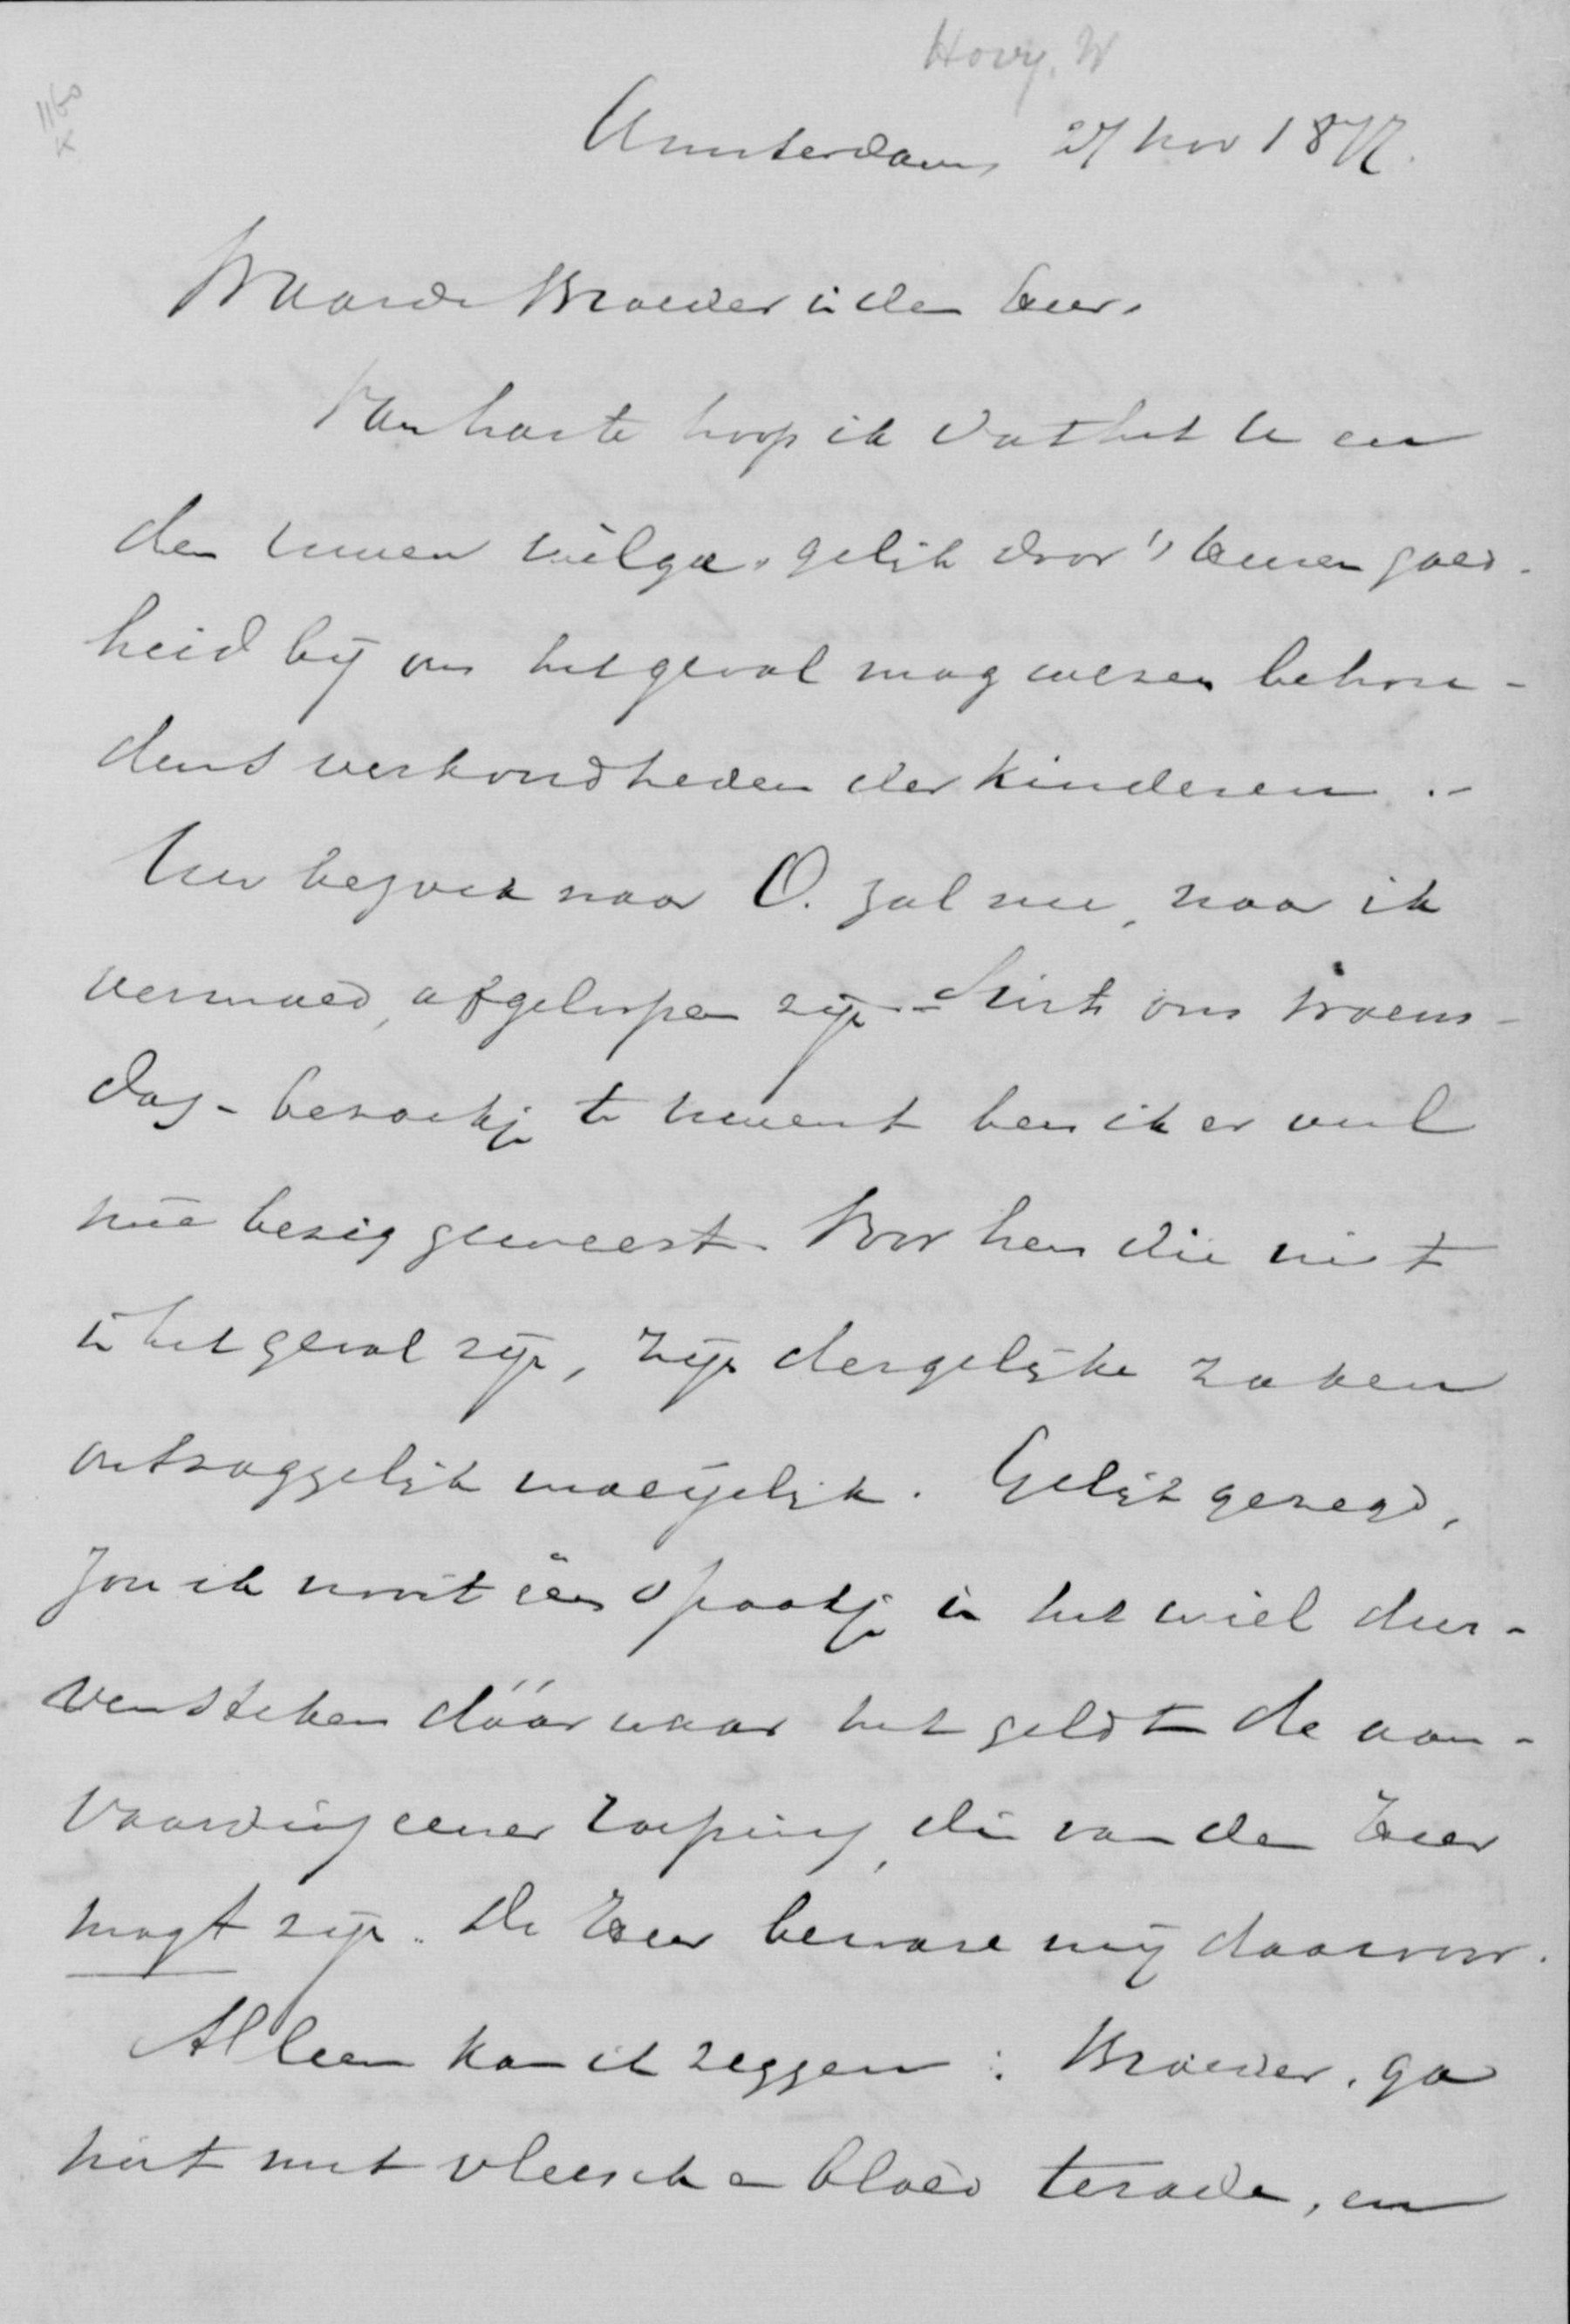 Hovy, W
1160
K
Amsterdam, 27 nov 1877.
Waarde Broeder in den Heer,
Van harte hoop ik dat het U en
den Uwen welga, gelijk door 's Heeren goed-
heid bij ons het geval mag wezen behou-
dens verkoudheden der kinderen.-
Uw bezoek naar O. zal nu, naar ik
vermoed, afgeloopen zijn - Sints ons woens-
dag-bezoekje te Uwent ben ik er veel
mee bezig geweest. Voor hen die niet
in het geval zijn, zijn dergelijke zaken
ontzaggelijk moeijelijk. Gelijk gezegd,
zou ik nooit één spaakje in het wiel dur-
ven steken dáár waar het geldt de aan-
vaarding eener roeping, die van den Heer
mogt zijn. De Heer beware mij daarvoor.
Alleen kan ik zeggen: Broeder, ga
niet met vleesch en bloed te rade, en